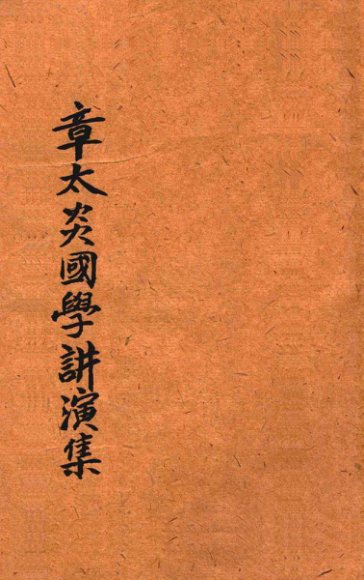 章太炎國學講演集